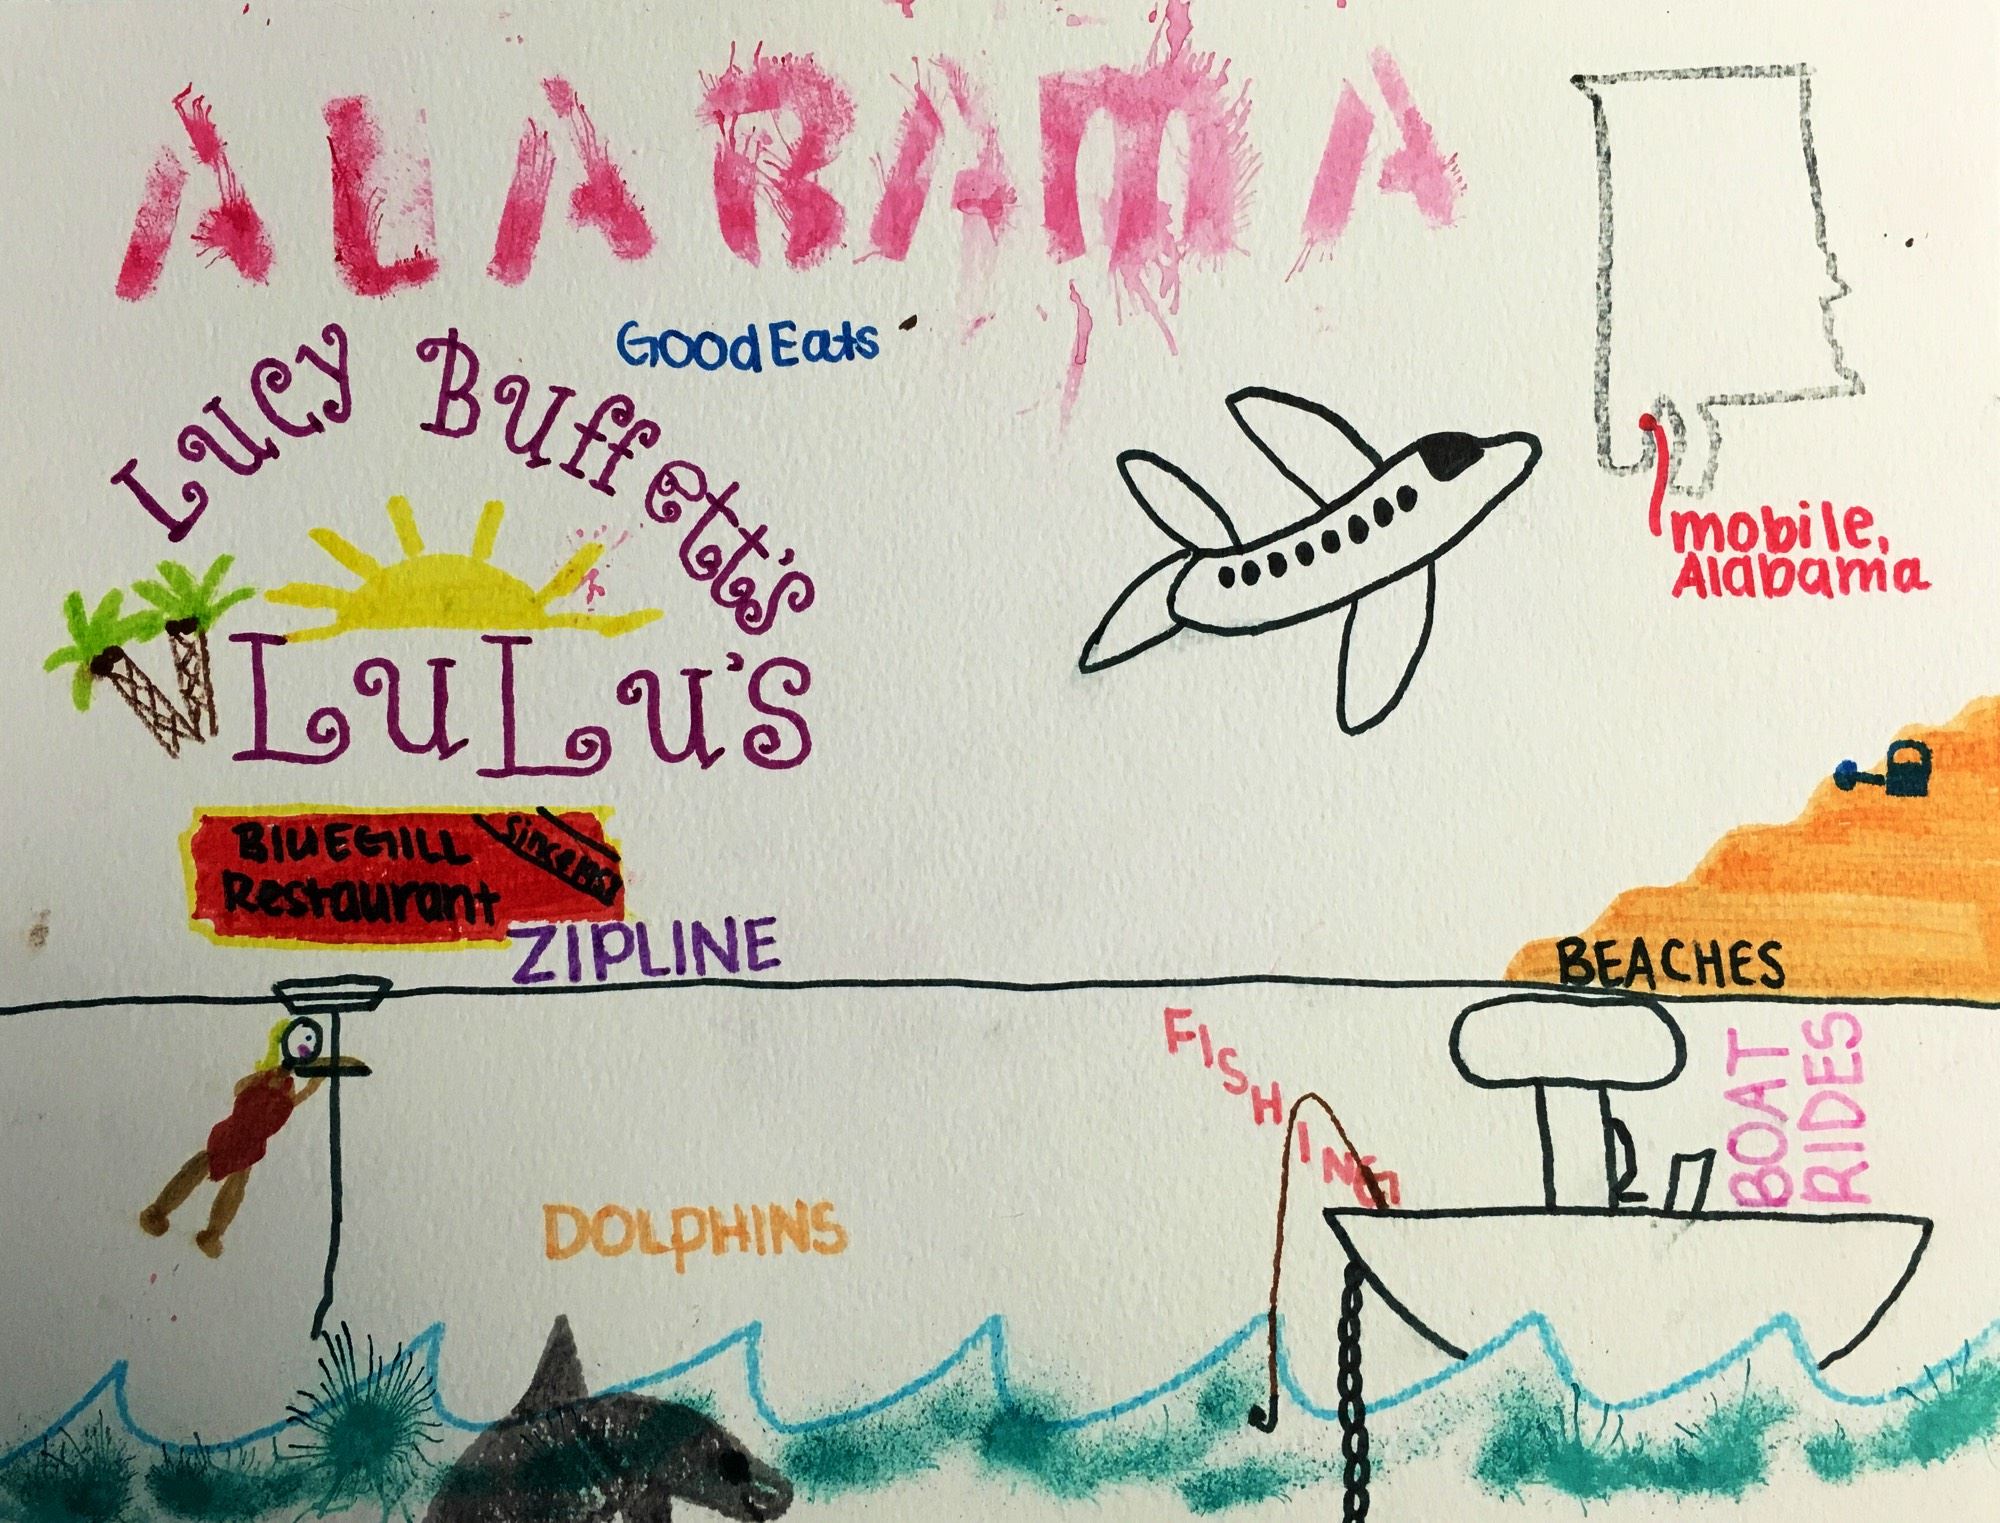 ALABAMA
Good Eats
Lucy Buffett's
LuLu's
mobile,
Alabama
BlUEGILL
Restaurant
Since
ZIPLINE
BEACHES
FISHING
BOAT
RIDES
DOLPHINS